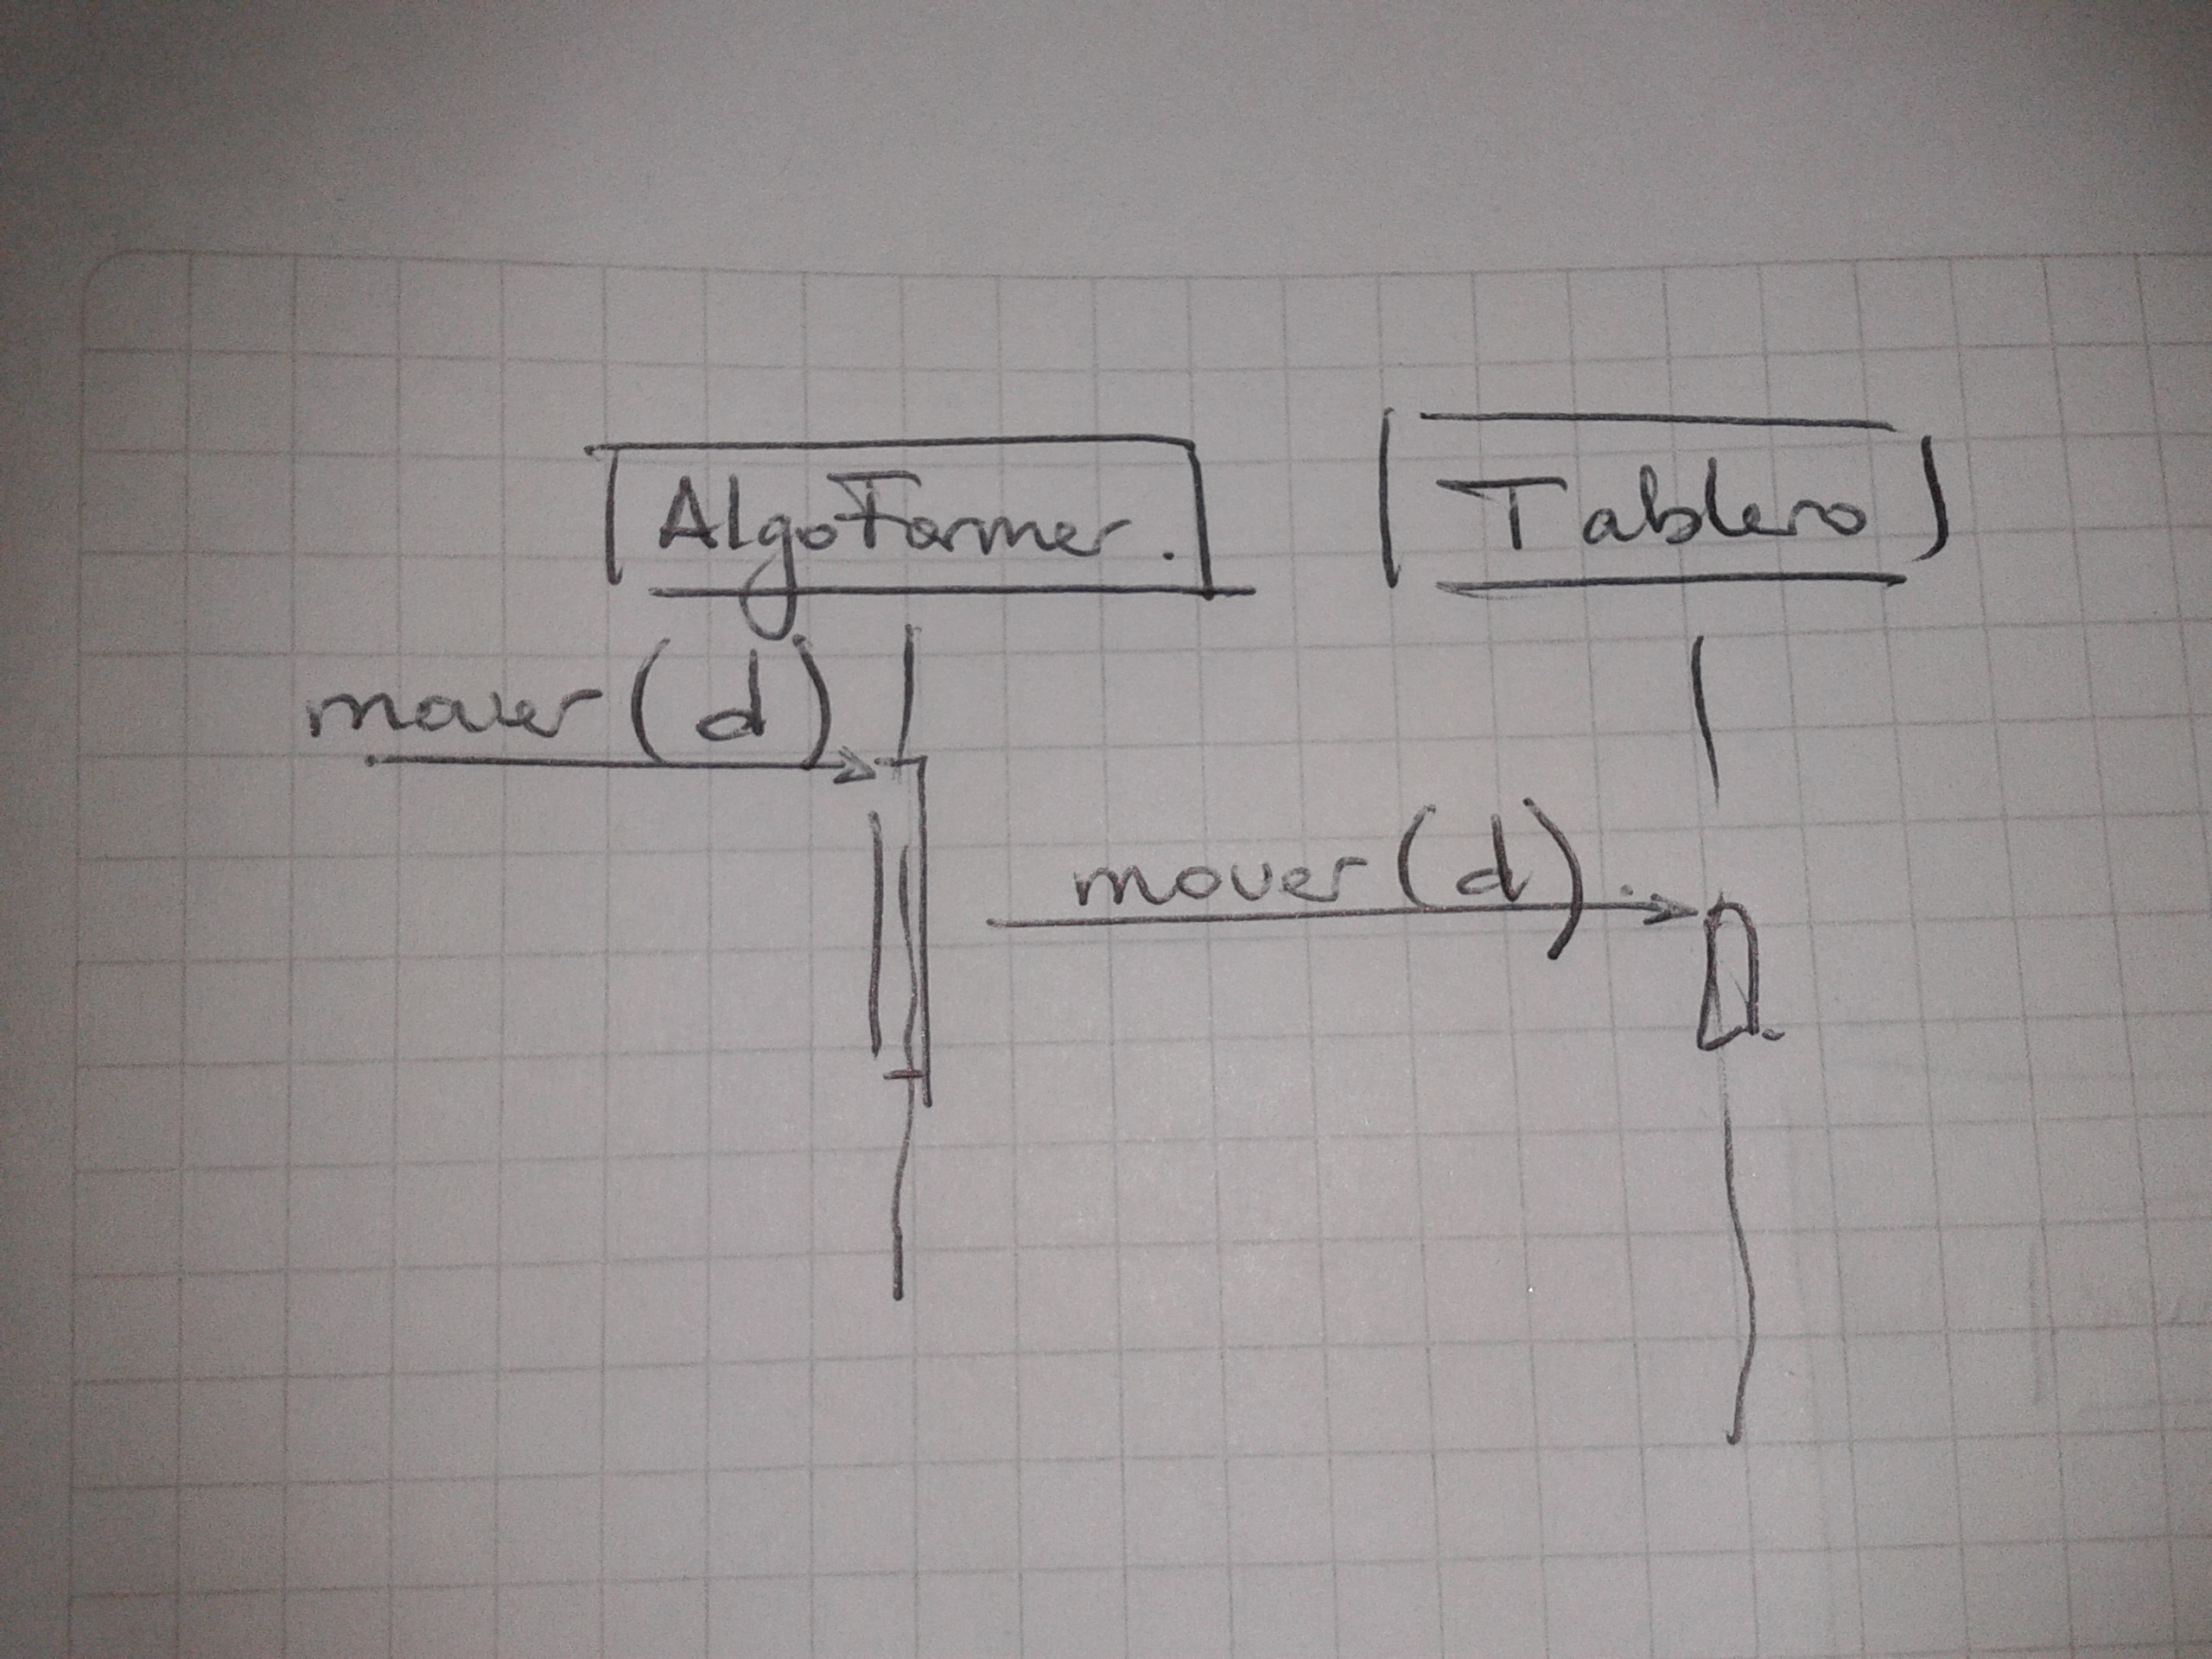 AlgoFormer.
Tablero
mover(d)
mover(d).